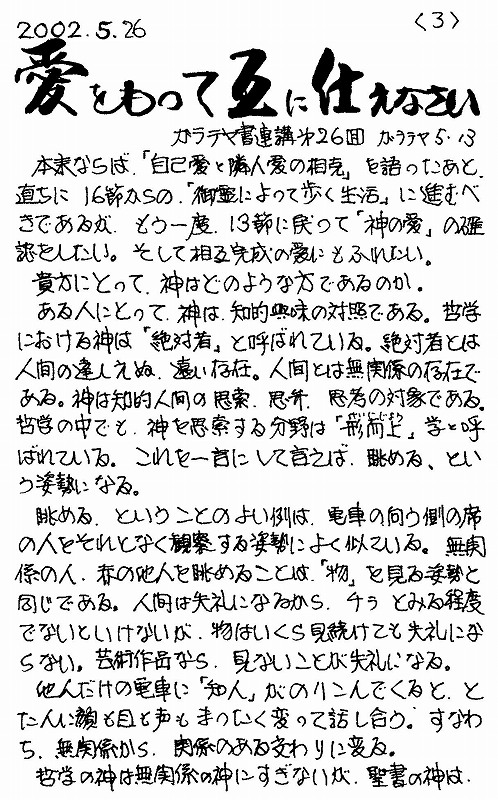 2002.5.26
〈3〉
愛をもって互に仕えなさい
ガラテヤ書連講第26回 ガラテヤ5・13
本来ならば、「自己愛と隣人愛の相克」を語ったあと、
直ちに16節からの、「御霊によって歩く生活」に進むべ
きであるが、もう一度、13節に戻って「神の愛」の確
認をしたい。そして相互完成の愛にもふれたい。
貴方にとって、神はどのような方であるのか。
ある人にとって、神は、知的興味の対照である。哲学
における神は「絶対者」と呼ばれている。絶対者とは
人間の達しえぬ、遠い存在。人間とは無関係の存在で
ある。神は知的人間の思索、思弁、思考の対象である。
哲学の中でも、神を思索する分野は「形而上」学と呼
けいじじょう
ばれている。これを一言にして言えば、眺める、とい
う姿勢になる。
眺める、ということのよい例は、電車の向う側の席
の人をそれとなく観察する姿勢によく似ている。無関
係の人、赤の他人を眺めることは、「物」を見る姿勢と
同じである。人間は失礼になるから、チラとみる程度
でないといけないが、物はいくら見続けても失礼にな
らない。芸術作品なら、見ないことが失礼になる。
他人だけの電車に「知人」がのりこんでくると、と
た人に顔も目も声もまったく変って話し合う。すなわ
ち、無関係から、関係のある交わりに変る。
哲学の神は無関係の神にすぎないが、聖書の神は、